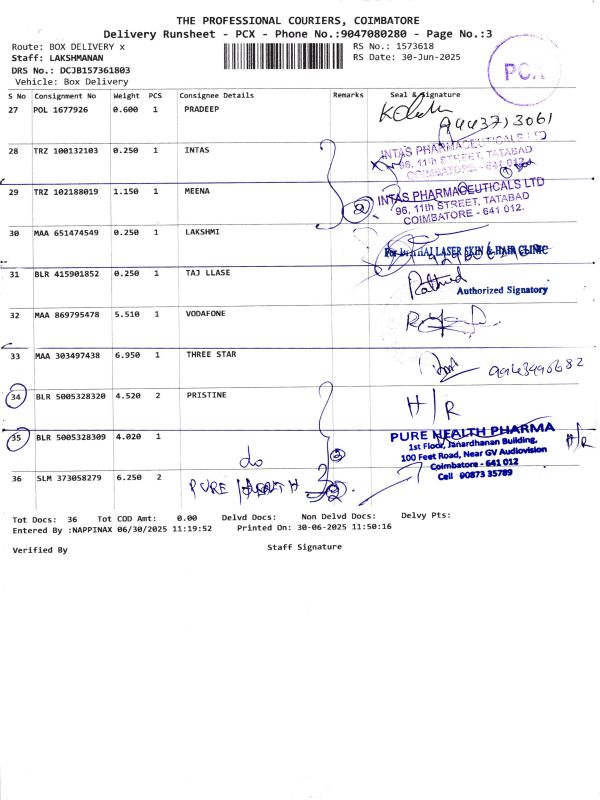 THE PROFESSIONAL COURIERS, COIMBATORE
Delivery Runsheet - PCX - Phone No.:9047080280 - Page No.:3
Route: BOX DELIVERY x
RS No.: 1573618
Staff: LAKSHMANAN
RS Date: 30-Jun-2025
DRS No.: DCJB157361803
Vehicle: Box Delivery
PCX
S No Consignment No Weight PCS Consignee Details Remarks Seal & Signature
27 POL 1677926 0.600 1 PRADEEP
9443713061
28 TRZ 100132103 0.250 1 INTAS
INTAS PHARMACEUTICALS LTD
96, 11th STREET, TATABAD
COIMBATORE - 641 012.
29 TRZ 102188019 1.150 1 MEENA
INTAS PHARMACEUTICALS LTD
96, 11th STREET, TATABAD
COIMBATORE - 641 012.
30 MAA 651474549 0.250 1 LAKSHMI
LASER SKIN & HAIR CLINIC
31 BLR 415901852 0.250 1 TAJ LLASE
Authorized Signatory
32 MAA 869795478 5.510 1 VODAFONE
33 MAA 303497438 6.950 1 THREE STAR
34 BLR 5005328320 4.520 2 PRISTINE
H/R
35 BLR 5005328309 4.020 1
do
PURE HEALTH PHARMA
1st Floor, Janardhanan Building,
100 Feet Road, Near GV Audiovision
Coimbatore - 641 012
Cell 90873 35789
H/R
36 SLM 373058279 6.250 2
PURE HEALTH
Tot Docs: 36 Tot COD Amt: 0.00 Delvd Docs: Non Delvd Docs: Delvy Pts:
Entered By :NAPPINAX 06/30/2025 11:19:52 Printed On: 30-06-2025 11:50:16
Verified By
Staff Signature